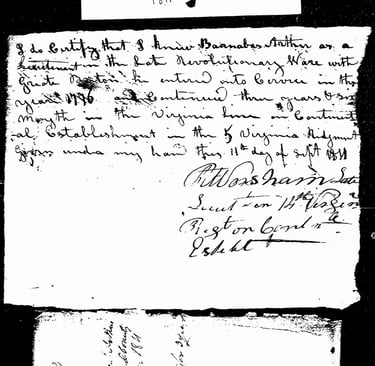 I do Certify that I knew Baanabas Arther as a
Lieutenant in the late Revolutionary Ware with
Great Briton he entered into Cervice in the
year 1776 and Contineued three years & six
Month in the Virginia line on Continent
al Establishment in the 5 Virginia Ridgment
Given under my hand this 11th day of Sept 1811
R Worsham late
Lieut in 14th Virgin
Regt on Contl
Establt